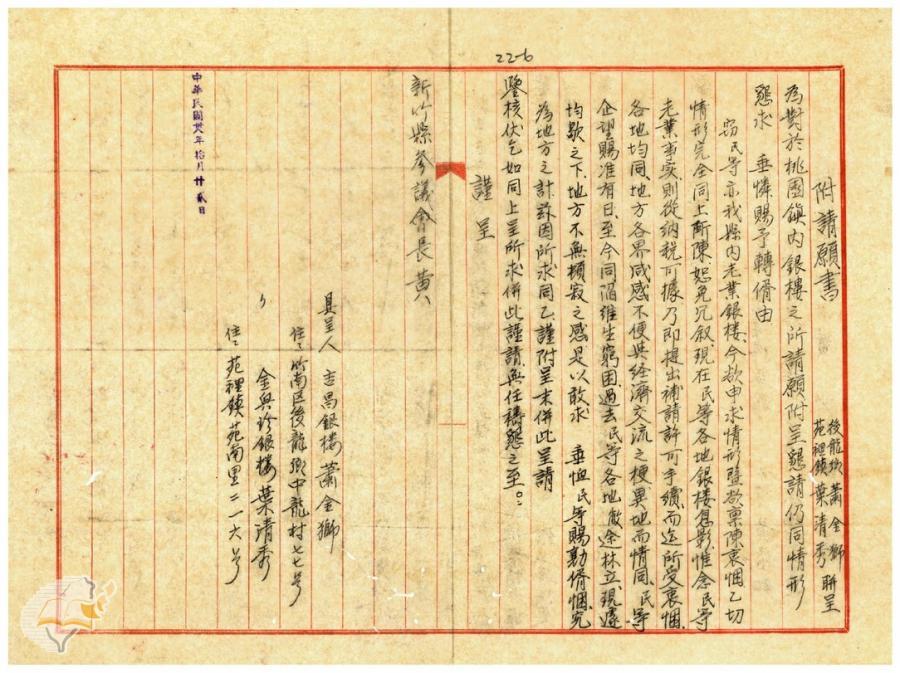 22-6
附請願書
後龍鄉蕭金獅
苑裡鎮葉清秀 聯呈
為對於桃園鎮內銀樓之所請願附呈懇請仍同情形
懇求 垂憐賜予轉脩由
竊民等亦我縣內老業銀樓、今欲申求情形暨欲稟陳衷悃乙切
情形完全同上所陳恕免冗叙、現在民等各地銀樓息影惟念民等
老業事实則從納稅可據乃即提出補請許可手續、而迄所受衷悃、
各地均同、地方各界咸感不便與経濟交流之梗異地而情同、民等
企望賜准有日、至今同陷維生窮困、過去民等各地敝途林立、現遽
均歇之下、地方不無頓寂之感是以敢求 垂恤民等賜勛脩悃、究
為地方之計茲因所求同乙、謹附呈末併此呈請
鑒核伏乞如同上呈所求併此謹請、無任禱懇之至。
謹呈
新竹縣參議會長黃
具呈人 吉昌銀楼 蕭金獅
住、竹南区後龍鄉中龍村七七号
〃 金興珍銀楼 葉清秀
住、苑裡鎮苑南里二一六号
中華民國卅 年拾月廿貳日